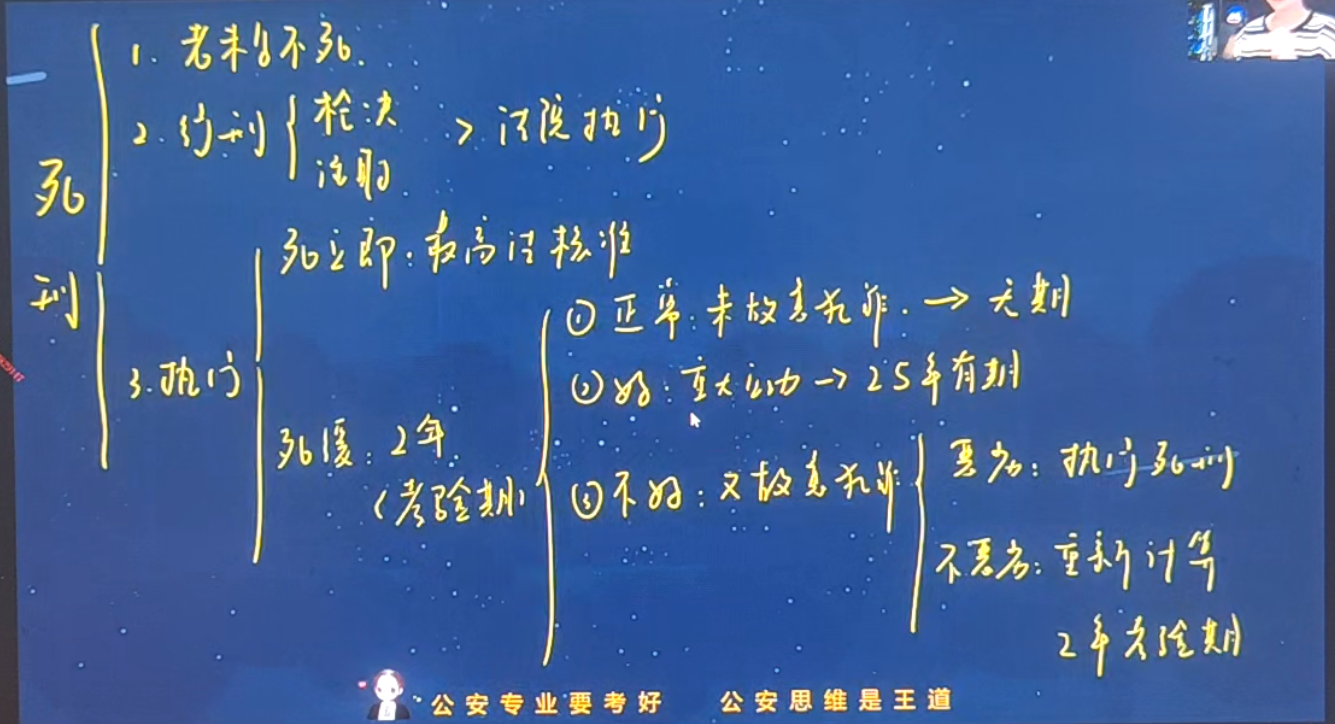 死刑
1. 老未孕不死.
2. 行刑
枪决
注射
> 法院执行
3. 执行
死立即: 最高法核准
死缓: 2年
(考验期)
① 正常: 未故意犯罪. → 无期
② 好: 重大立功 → 25年有期
③ 不好: 又故意犯罪
恶劣: 执行死刑
不恶劣: 重新计算
2年考验期
公安专业要考好 公安思维是王道